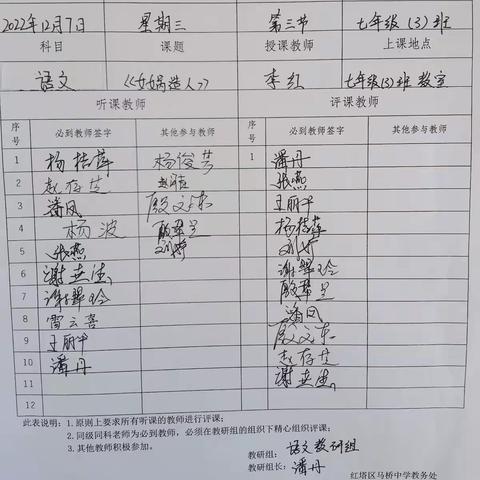 2022年12月7日 星期三 第三节 七年级(3)班
科目 课题 授课教师 上课地点
语文 《女娲造人》 李红 七年级(3)班教室
听课教师 评课教师
序号 必到教师签字 其他参与教师 序号 必到教师签字 其他参与教师
1 杨桂萍 杨俊芳 1 潘丹
2 赵存芝 张燕
3 潘凤 殷文东 王丽平
4 杨波 杨桂萍
5 张燕 刘婷 刘婷
6 谢世洁 谢翠玲
7 谢翠玲
8 雷云喜 潘凤
9 王丽平 殷文东
10 潘丹 赵存芝
11 谢世洁
12
此表说明：1.原则上要求所有听课的教师进行评课；
2.同级同科老师为必到教师，必须在教研组的组织下精心组织评课；
3.其他教师积极参加。
教研组：语文教研组
教研组长：潘丹
红塔区马桥中学教务处